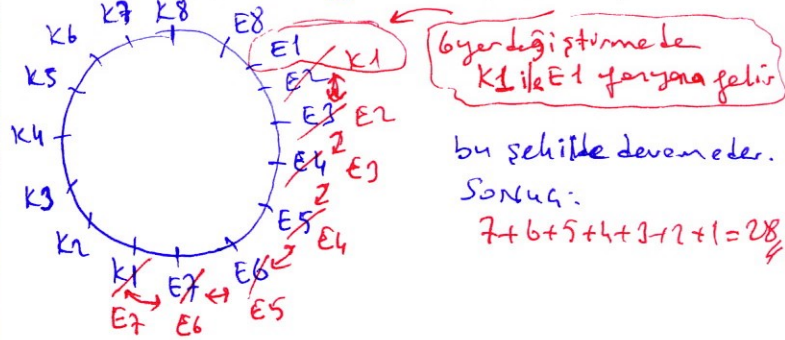 K7 K8 E8
K6 E1 K1
K5 E2
K4 E3 E2
K3 E4 E3
K2 E5 E4
K1 E7 E6
E7 E6 E5
6 yer değiştirmede
K1 ile E1 yanyana gelir
bu şekilde devam eder.
SONUÇ:
7+6+5+4+3+2+1=28